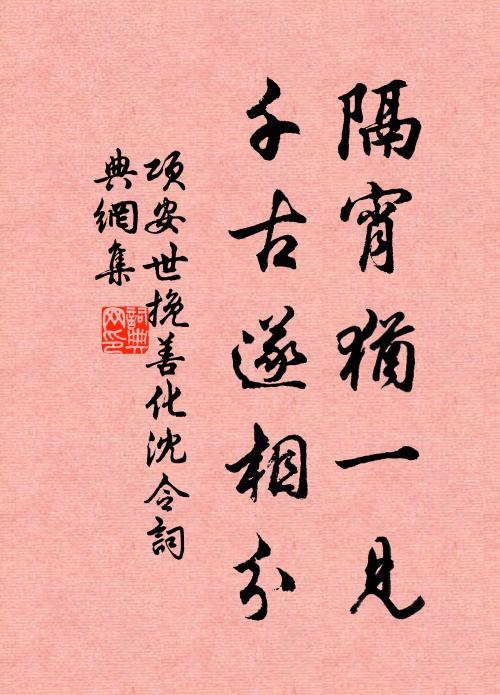 隔宵猶一見
千古遂相分
項安世挽善化沈令詞
典網集
詞典
网印